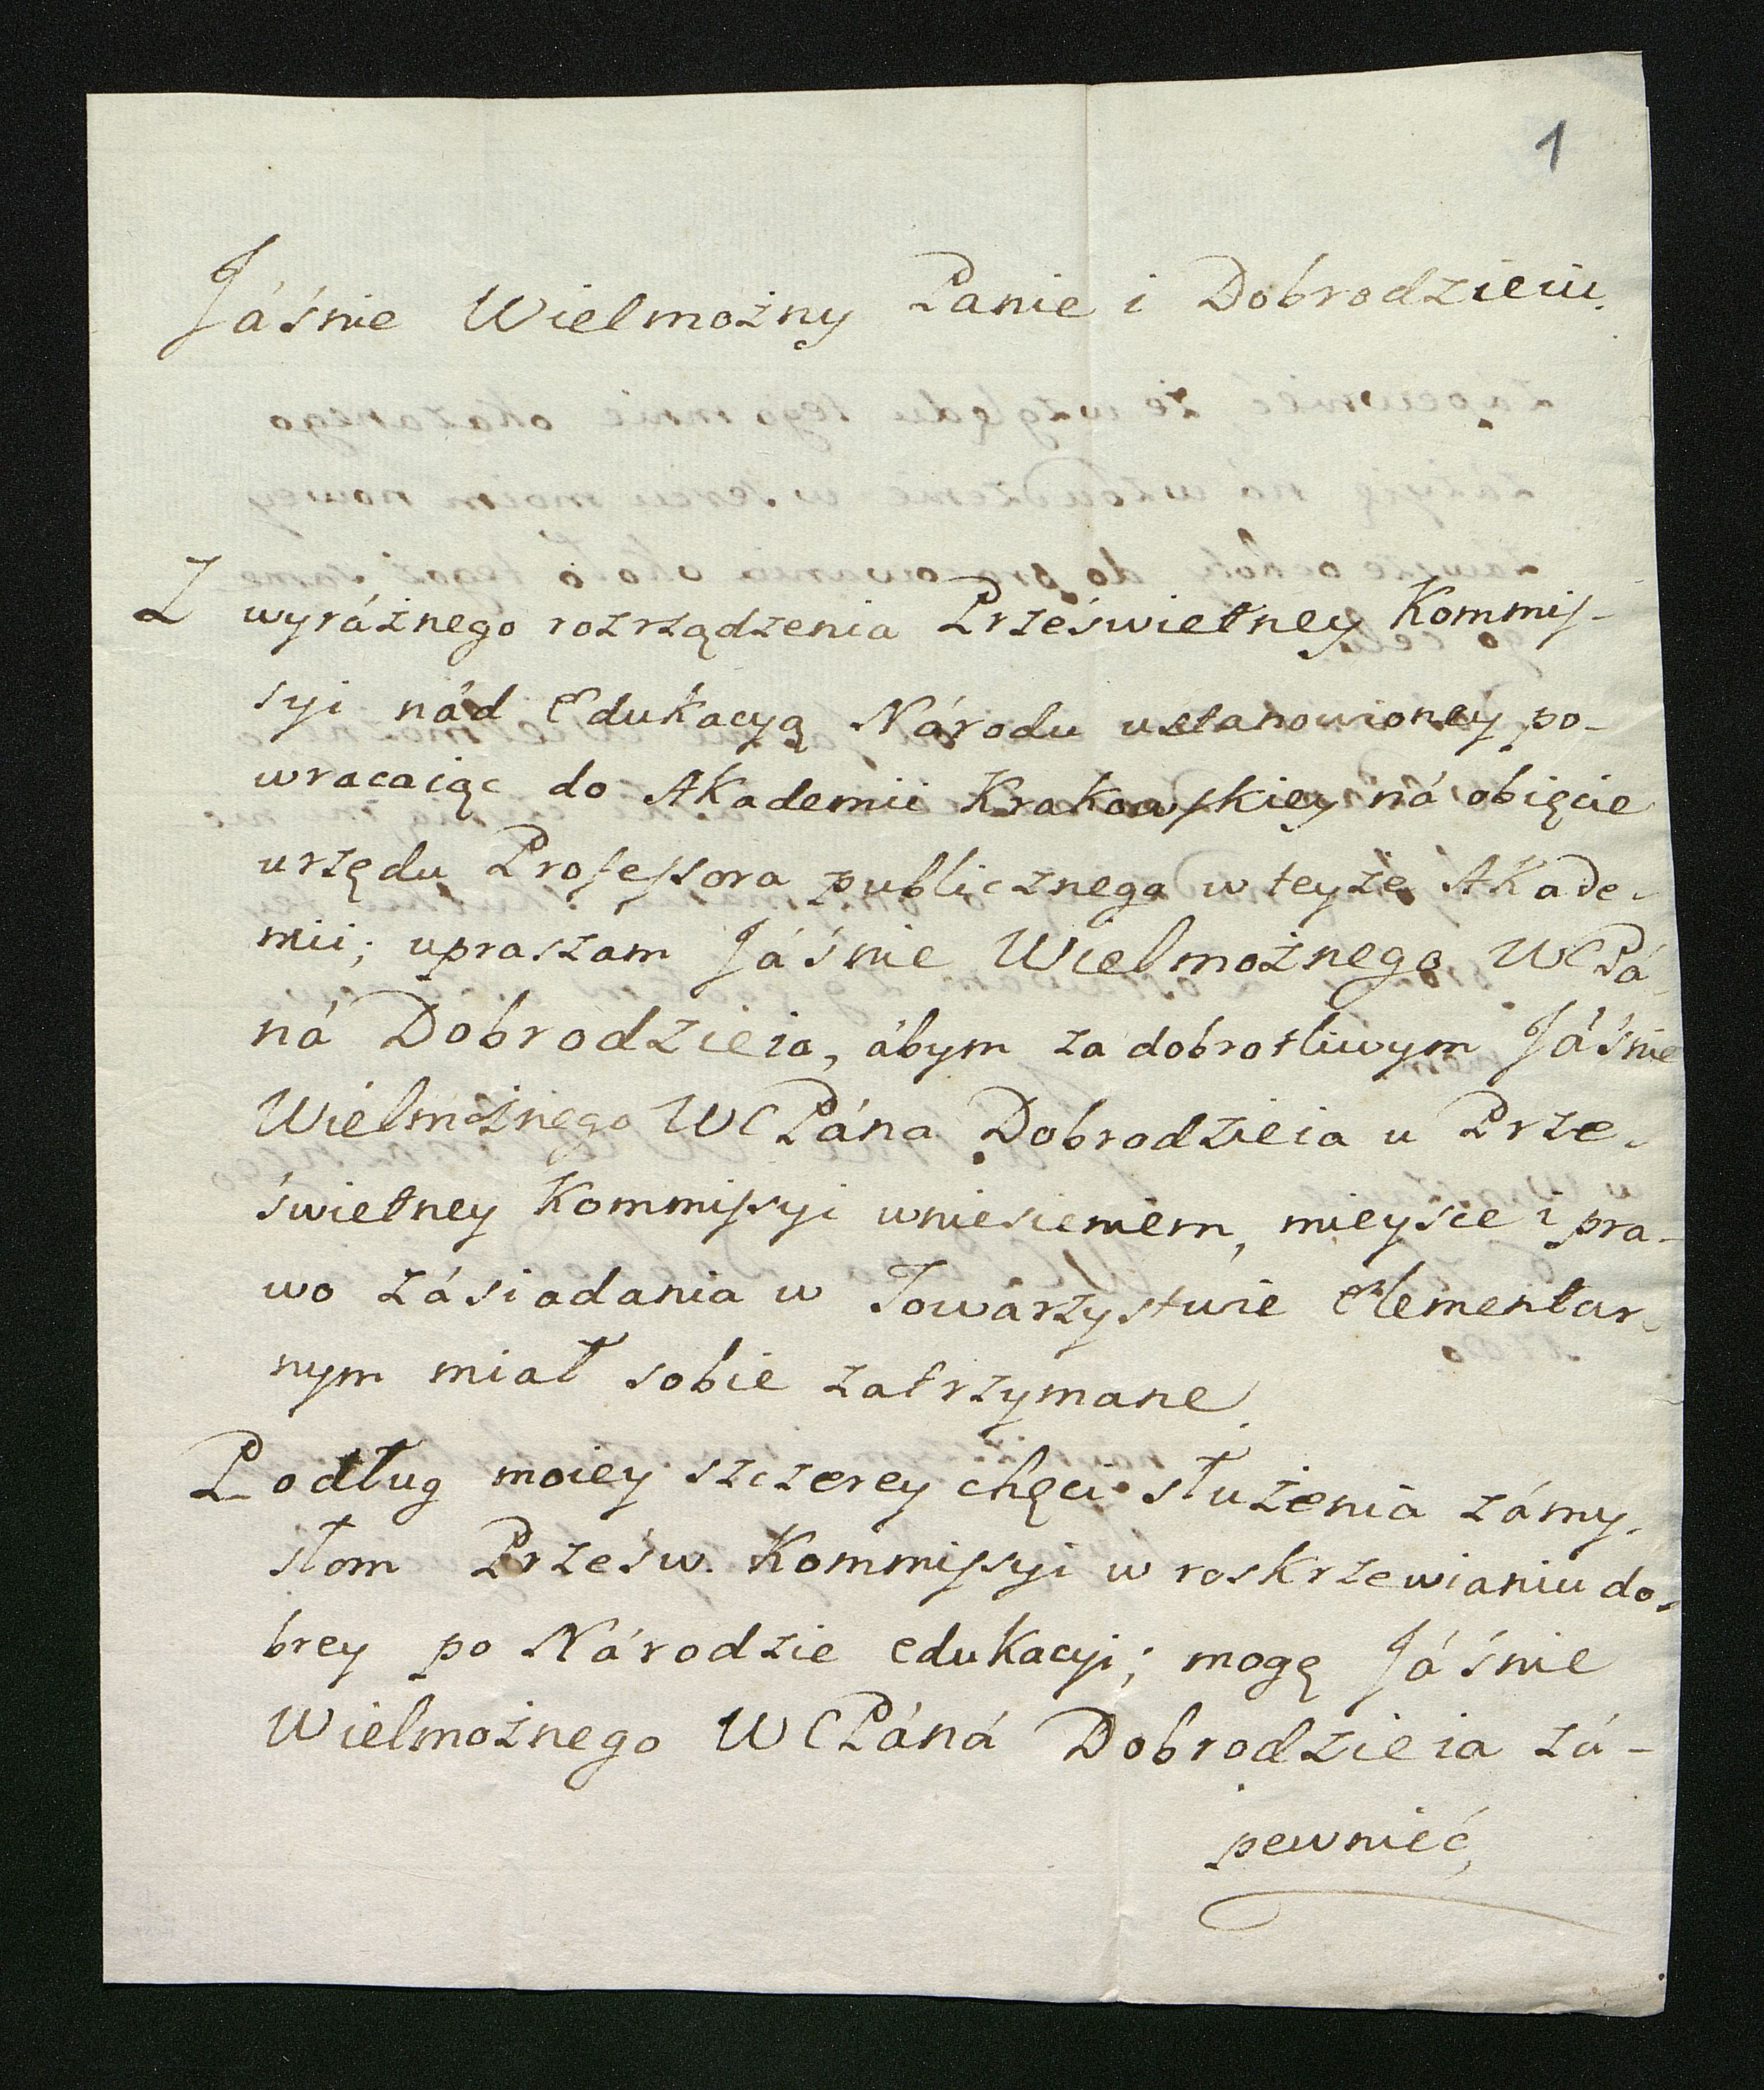 1
Jáśnie Wielmożny Panie i Dobrodzieiu.
Z wyráźnego rozrządzenia Prześwietney Kommis-
syi nád Edukacyą Národu ustanowioney po-
wracaiąc do Akademii Krakowskiey ná obięcie
urzędu Professora publicznego w teyże Akade-
mii; upraszam Jáśnie Wielmożnego WCPá-
ná Dobrodzieia, ábym za dobrotliwym Jáśnie
Wielmożnego WCPána Dobrodzieia u Prze-
świetney Kommissyi wniesieniem, mieysce i pra-
wo zásiadania w Towárzystwie Elementar-
nym miał sobie zatrzymane.
Podług moiey szczerey chęci służenia zámy-
słom Prześw. Kommissyi w roskrzewianiu do-
brey po Národzie edukacyi; mogę Jáśnie
Wielmożnego WCPáná Dobrodzieia zá-
pewnić,